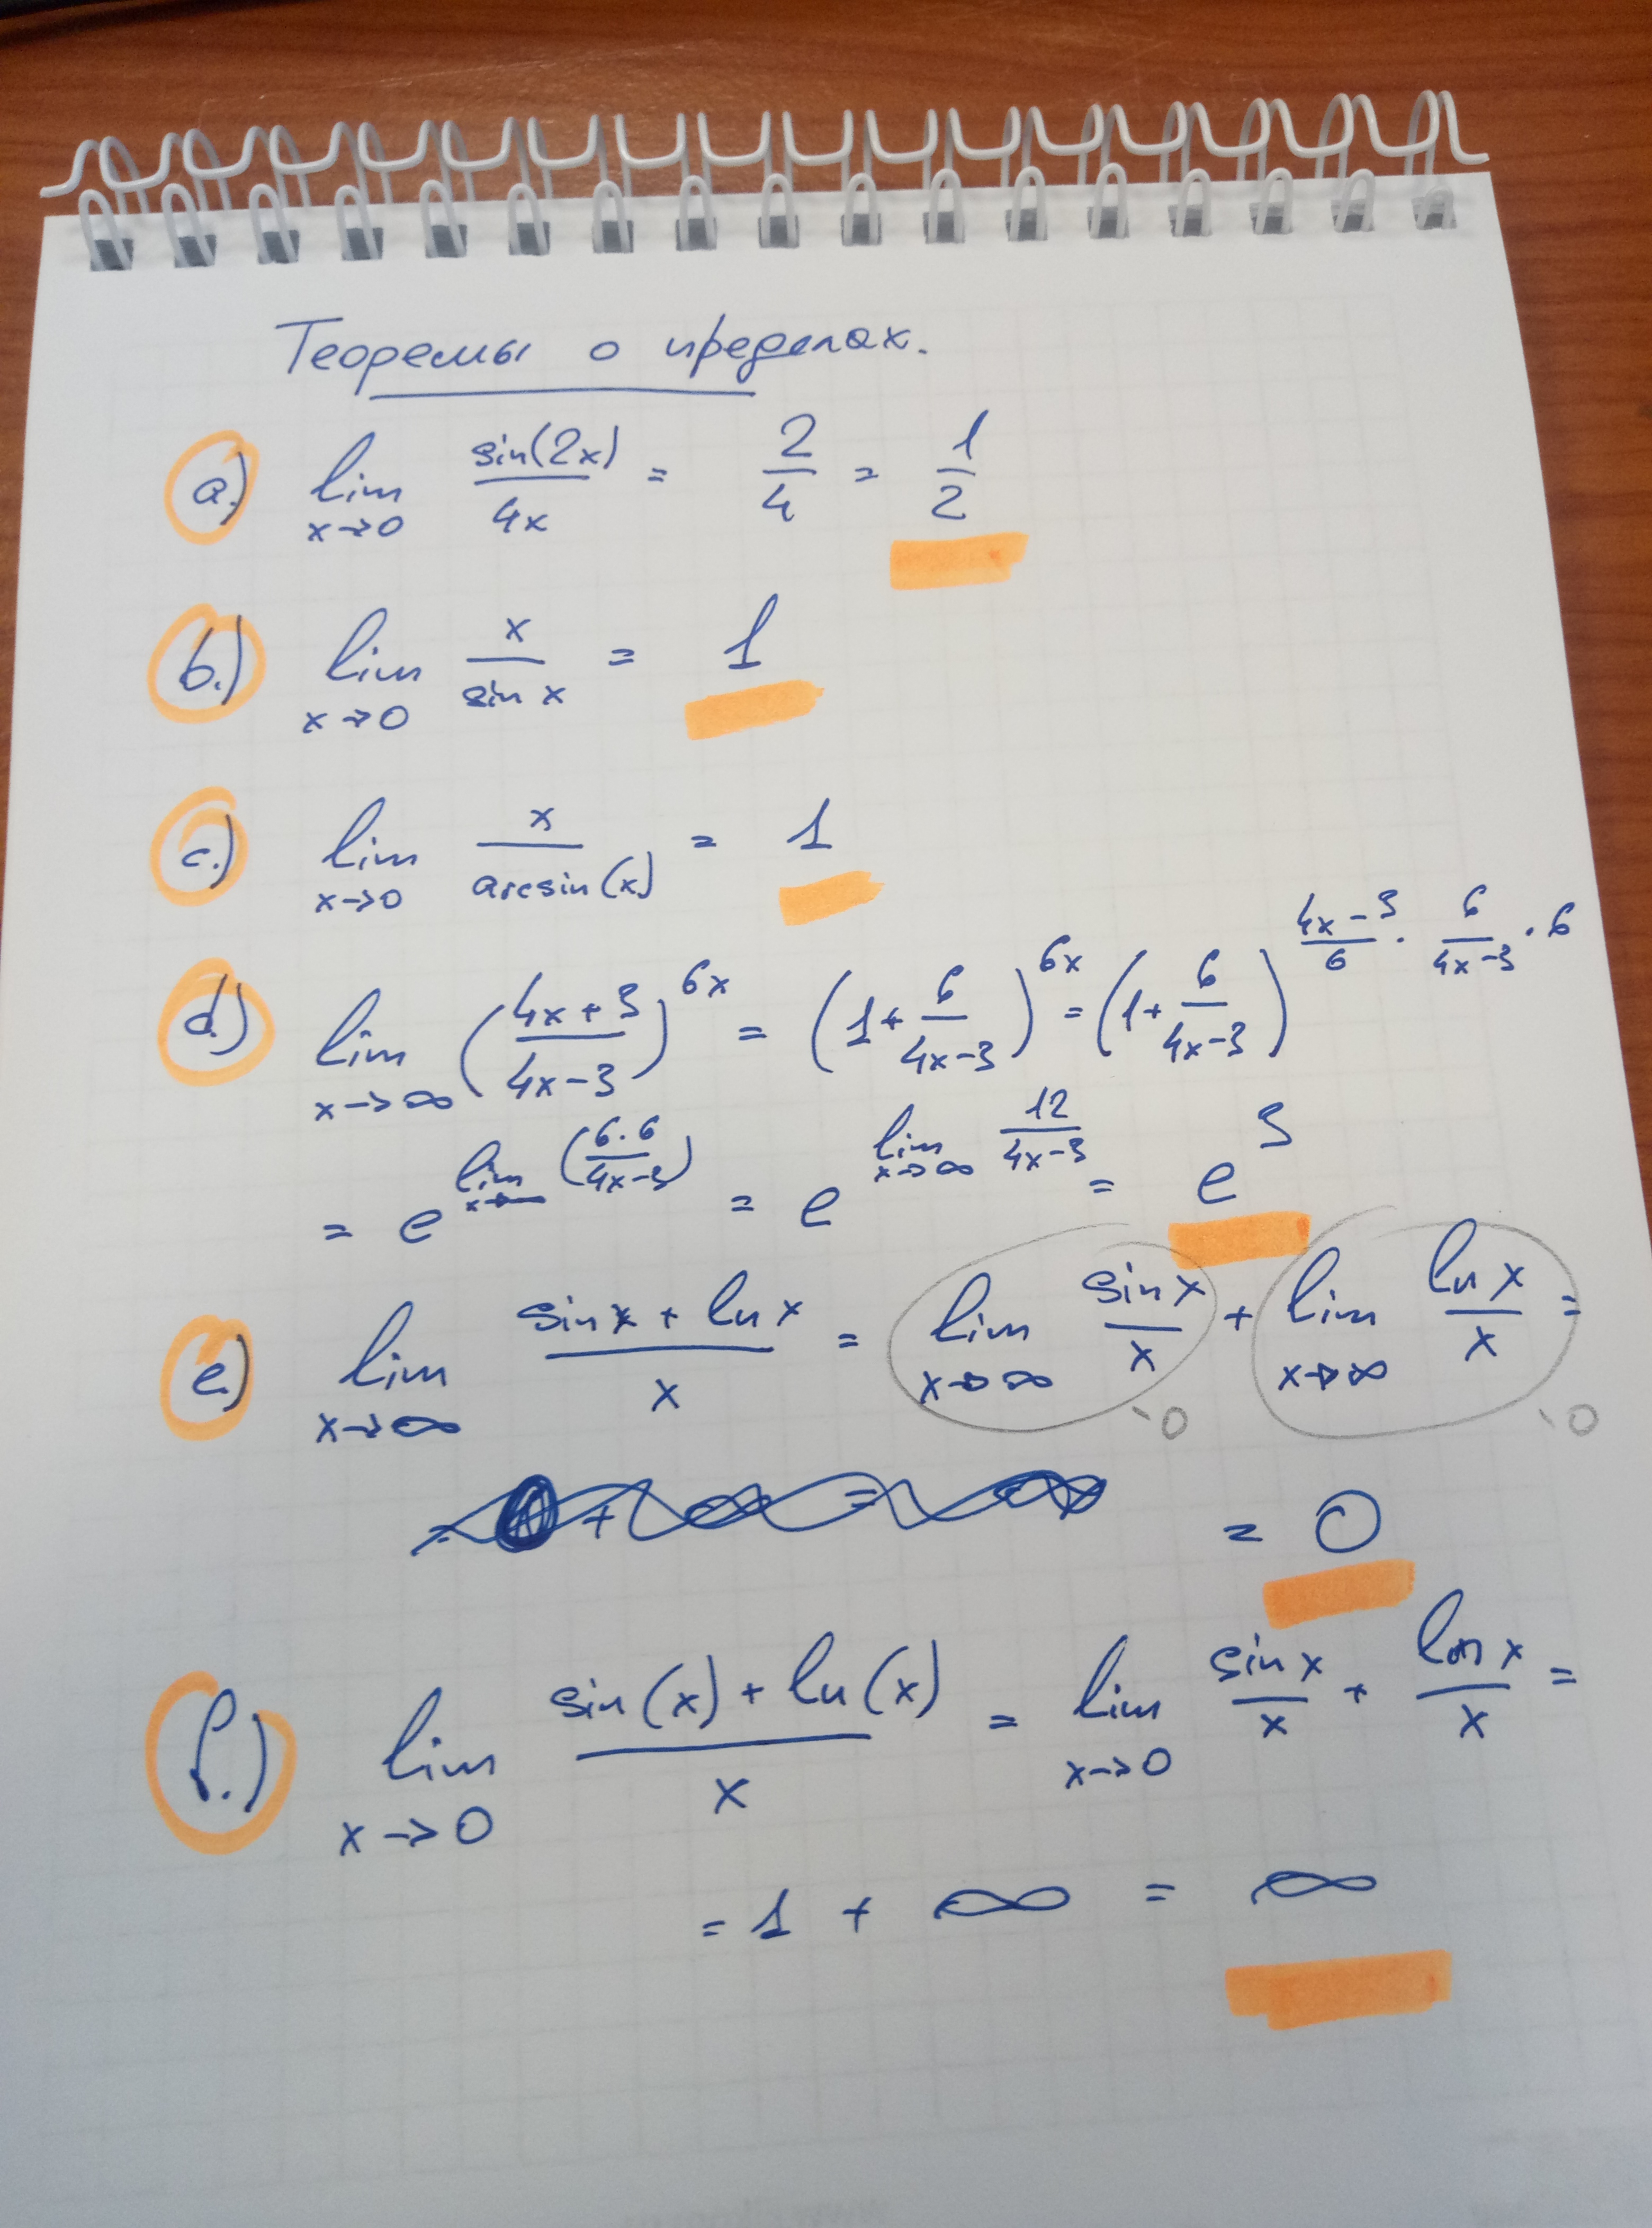 Теоремы о пределах.
a.) lim x→0 sin(2x)/4x = 2/4 = 1/2
b.) lim x→0 x/sin x = 1
c.) lim x→0 x/arcsin(x) = 1
d.) lim x→∞ ((4x+3)/(4x-3))^6x = (1+6/(4x-3))^6x = (1+6/(4x-3))^((4x-3)/6 · 6/(4x-3) · 6
= e^lim x→ (6·6/(4x-3)) = e^lim x→∞ 12/(4x-3) = e^3
e.) lim x→∞ (sin x + ln x)/x = lim x→∞ sin x/x + lim x→∞ ln x/x =
0 0
= 0
f.) lim x→0 (sin(x) + ln(x))/x = lim x→0 sin x/x + ln x/x =
= 1 + ∞ = ∞